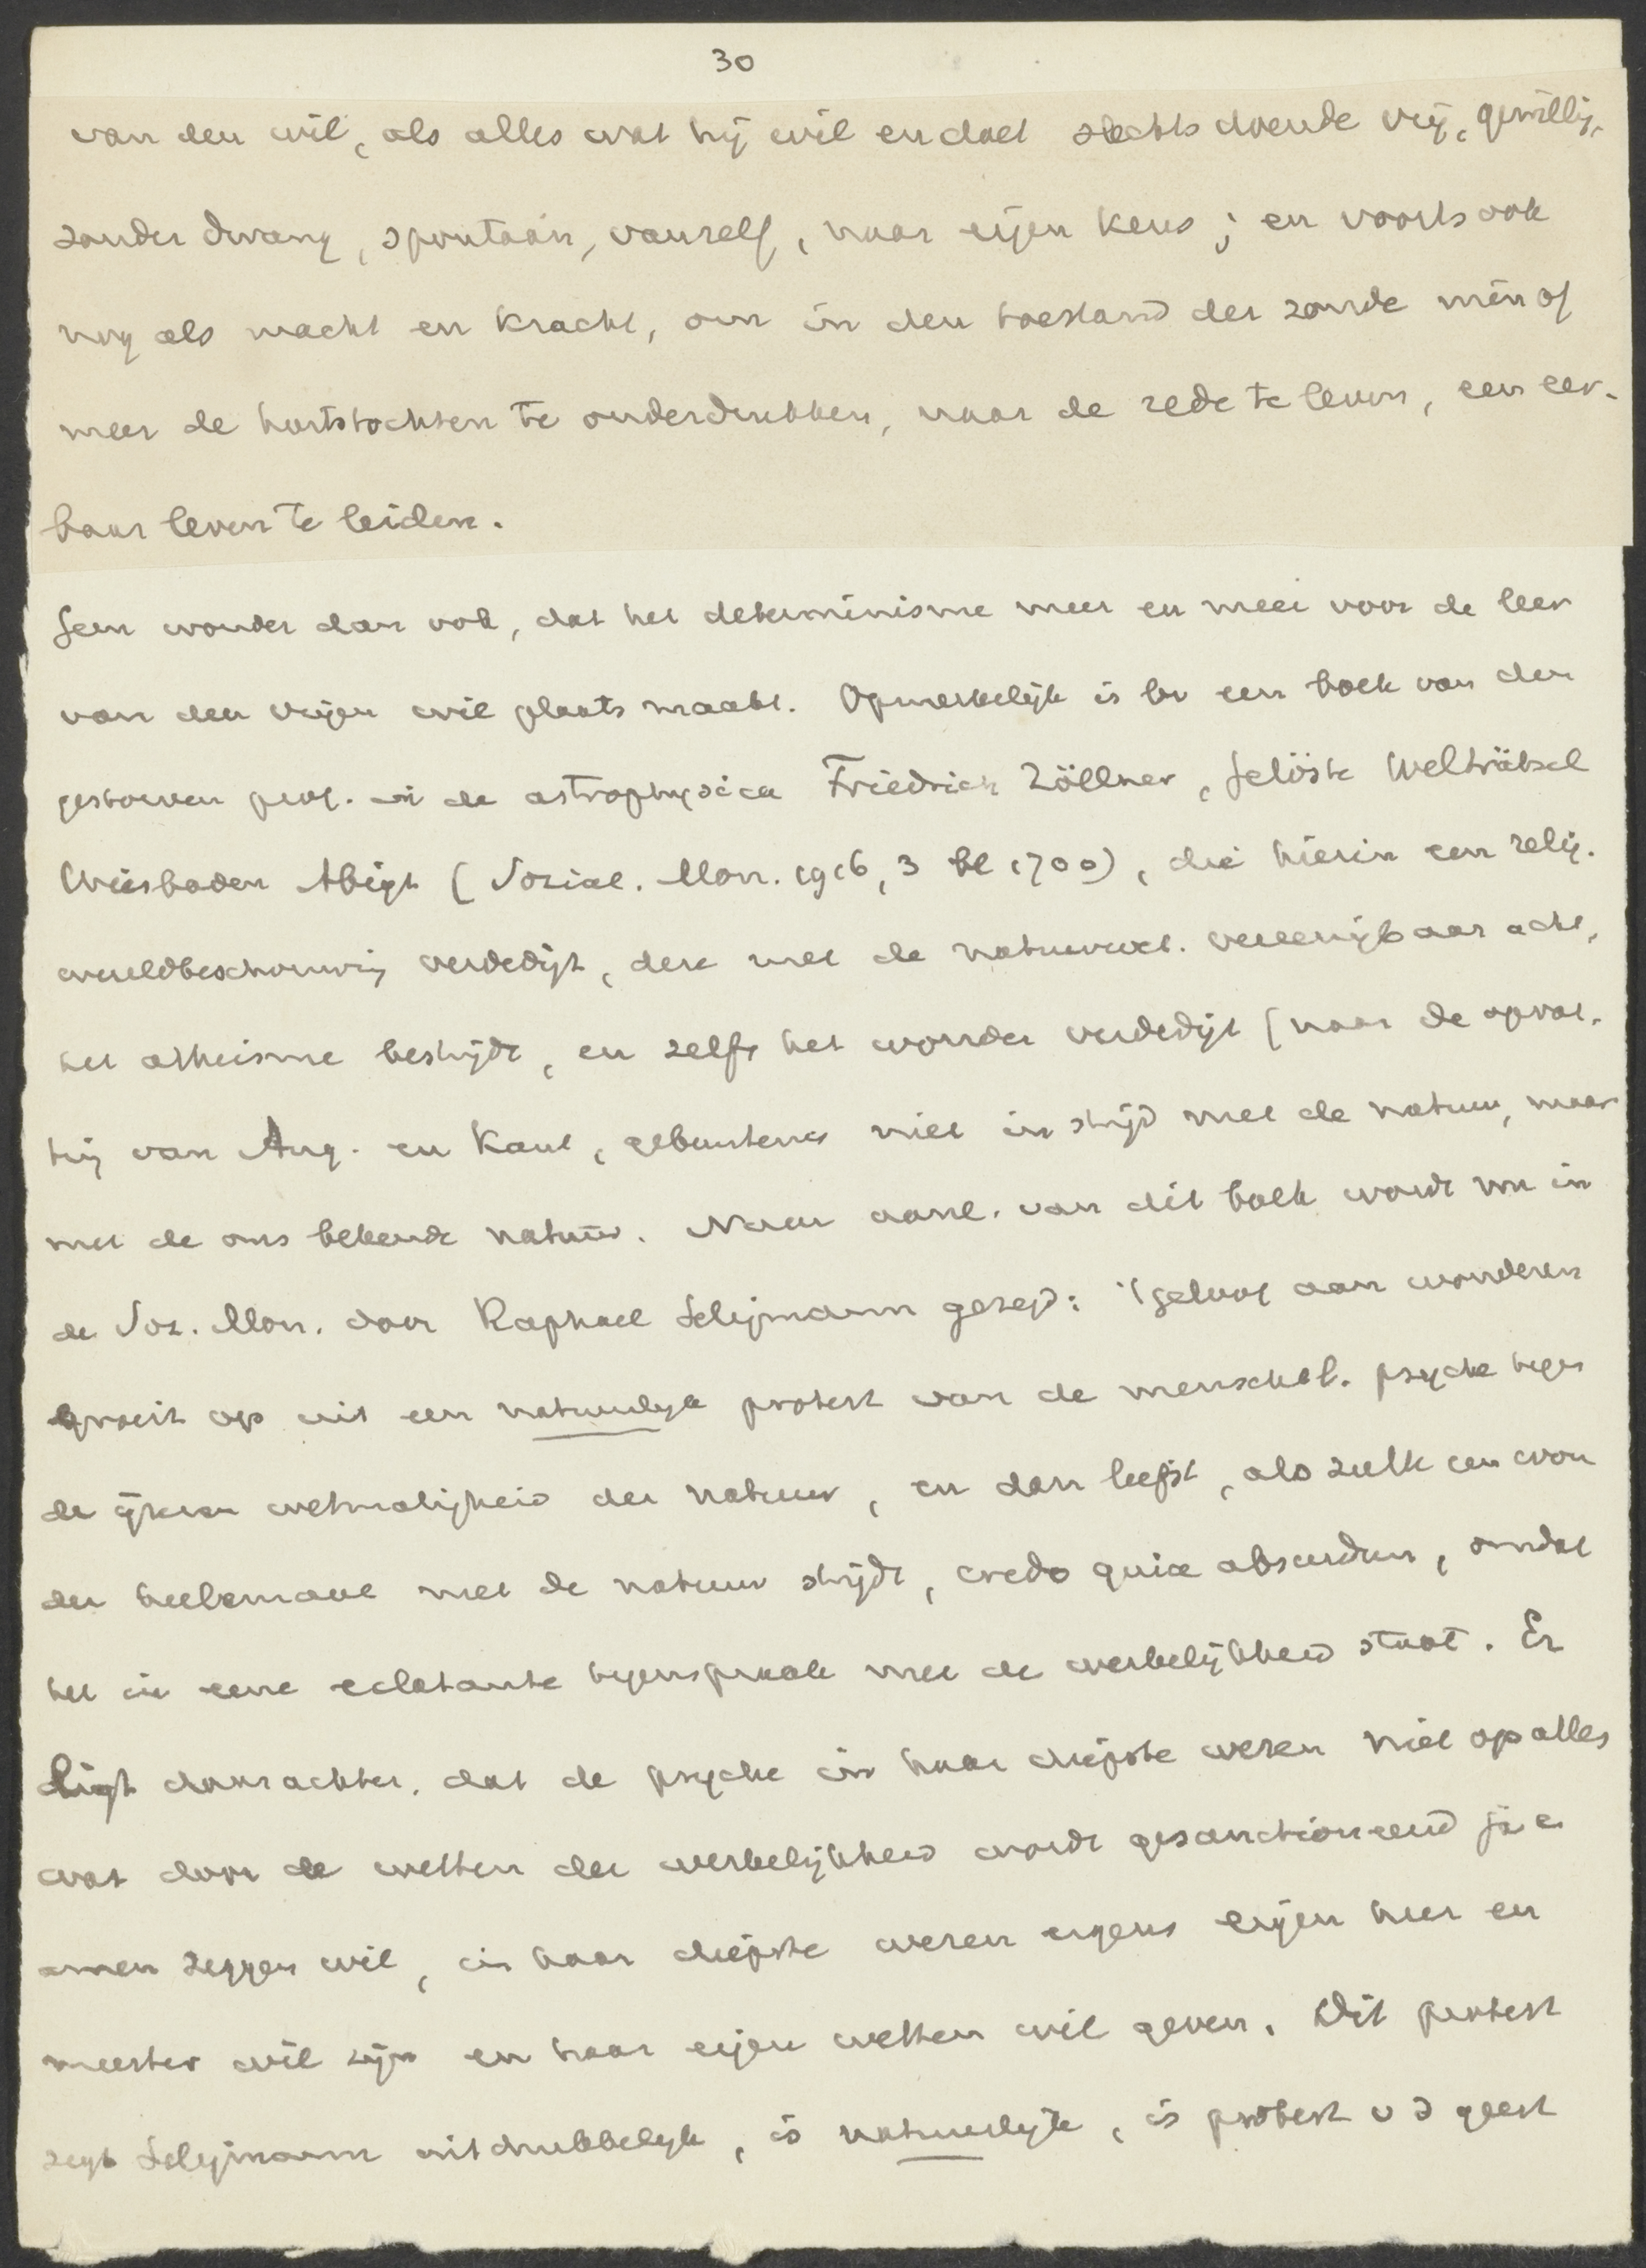 30
van den wil, als alles wat hij wil en doet slechts doende vrij, gewillig,
zonder dwang, spontaan, vanzelf, naar eigen keus; en voorts ook
nog als macht en kracht, om in den toestand der zonde min of
meer de hartstochten te onderdrukken, naar de rede te leven, een eer-
baar leven te leiden.
Geen wonder dan ook, dat het determinisme meer en meer voor de leer
van den vrijen wil plaats maakt. Opmerkelijk is bv een boek van den
gestorven prof. in de astrophysica Friedrich Zöllner, Gelöste Welträtsel
Wiesbaden Abigt (Sozial. Mon. 1916, 3 bl 1700), die hierin een relig.
wereldbeschouwing verdedigt, deze met de natuurwet. vereenigbaar acht,
het atheisme bestrijdt, en zelfs het wonder verdedigt (naar de opvat-
ting van Aug. en Kant, gebeurtenis niet in strijd met de natuur, maar
met de ons bekende natuur. Naar aanl. van dit boek wordt nu in
de Soz. Mon. door Raphael Seligmann gezegd: 't geloof aan wonderen
groeit op uit een natuurlijk protest van de menschel. psyche tegen
de ijzeren wetmatigheid der natuur, en dan liefst, als zulk een won
der heelemaal met de natuur strijdt, credo quia absurdum, omdat
het in eene eclatante tegenspraak met de werkelijkheid staat. Er
ligt daarachter, dat de psyche in haar diepste wezen niet op alles
wat door de wetten der werkelijkheid wordt gesanctioneerd ja en
amen zeggen wil, in haar diepste wezen ergens eigen heer en
meester wil zijn en haar eigen wetten wil geven. Dit protest
zegt Seligmann uitdrukkelijk, is natuurlijk, is protest v d geest